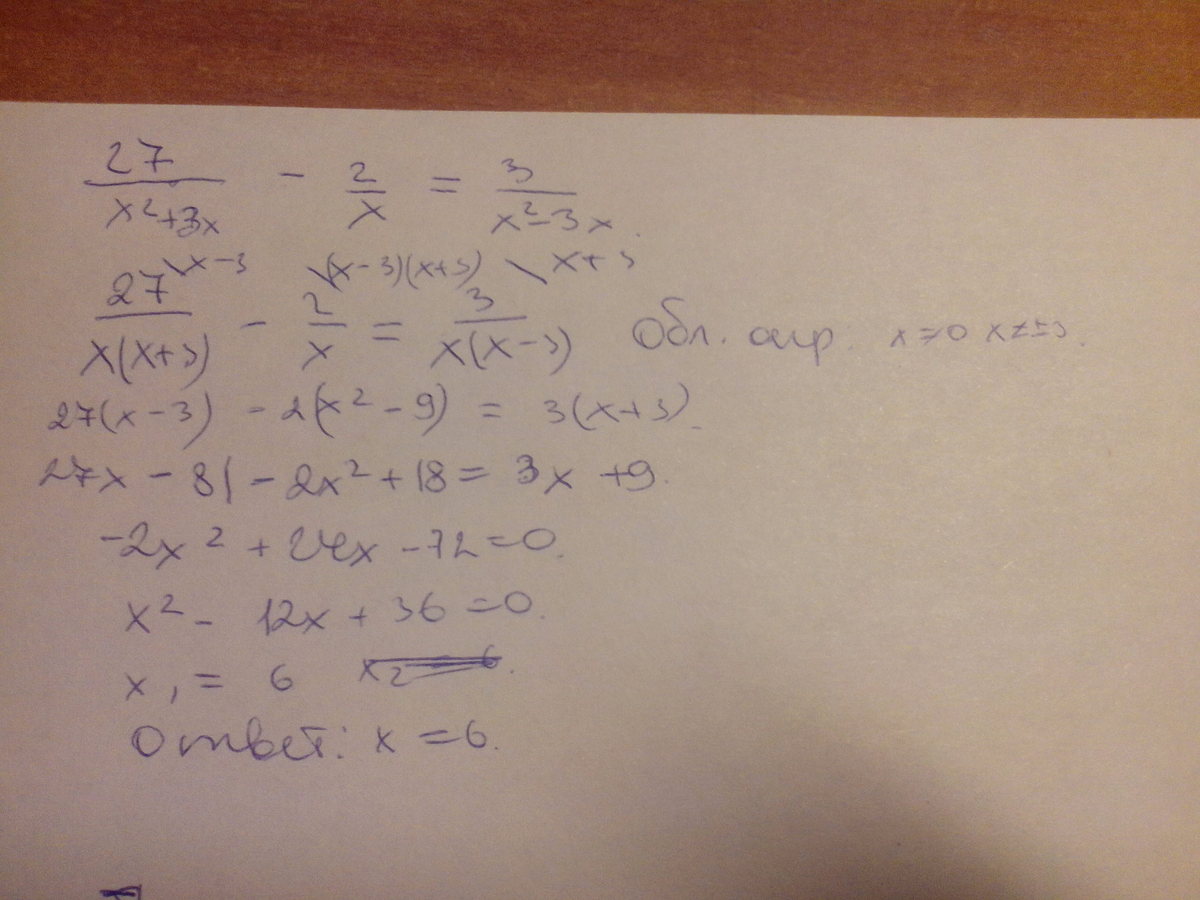 27/(x²+3x) - 2/x = 3/(x²-3x).
27\x-3/(x(x+3)) - 2\(x-3)(x+3)/x = 3\x+3/(x(x-3)) Обл. опр. x≠0 x≠±3.
27(x-3) - 2(x²-9) = 3(x+3).
27x - 81 - 2x² + 18 = 3x + 9.
-2x² + 24x - 72 = 0.
x² - 12x + 36 = 0.
x₁ = 6
Ответ: x = 6.